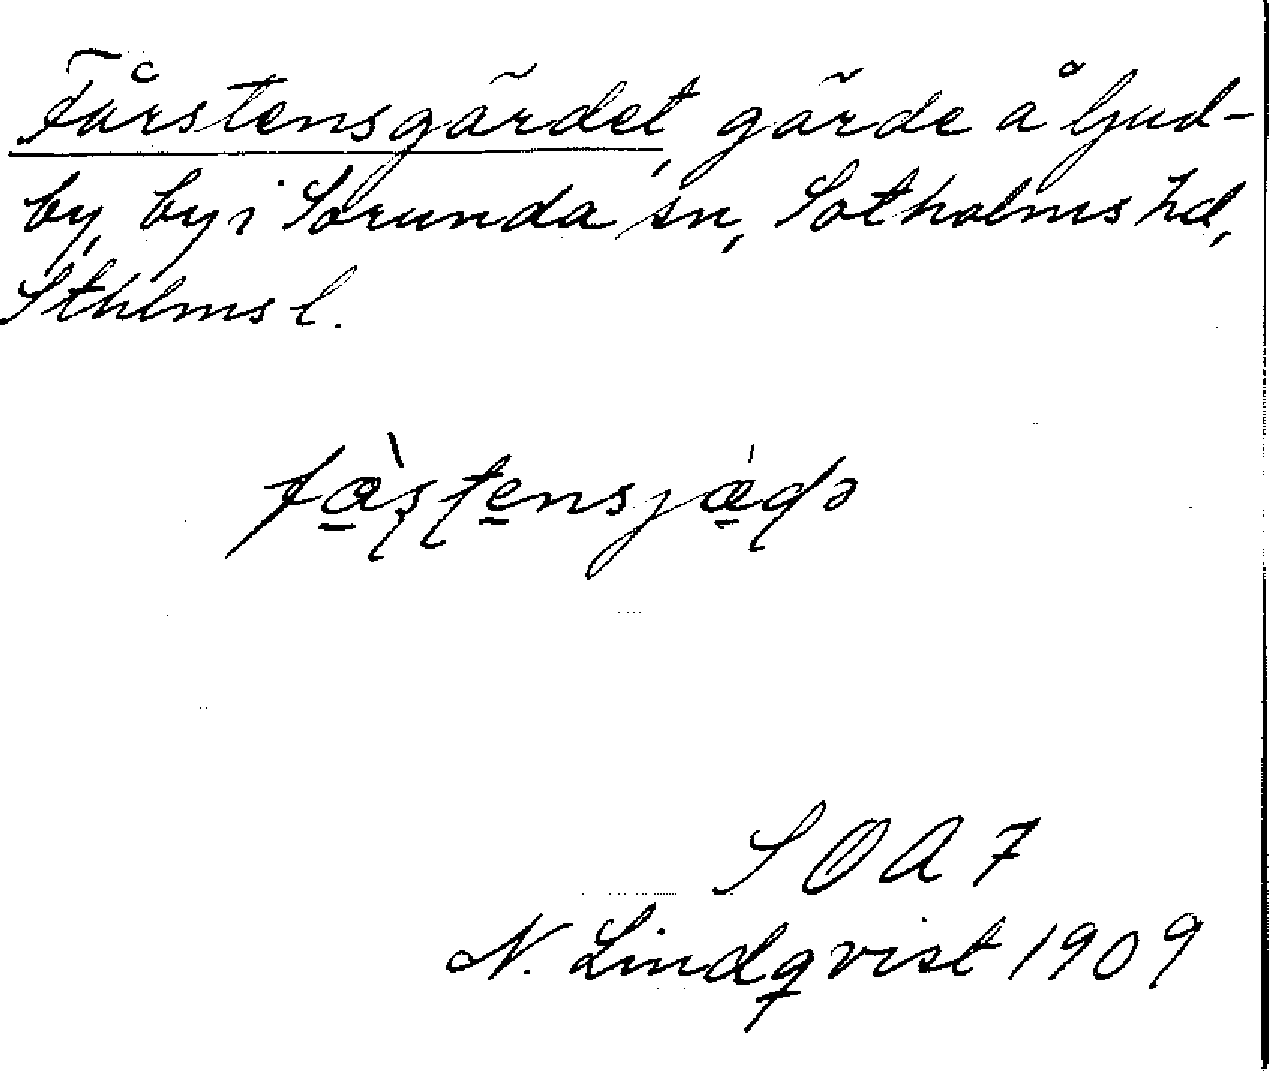 Fårstensgärdet, gärde å Ljud-
by, by i Sorunda sn, Sotholms hd,
Sthlms l.
SOA 7
N. Lindqvist 1909